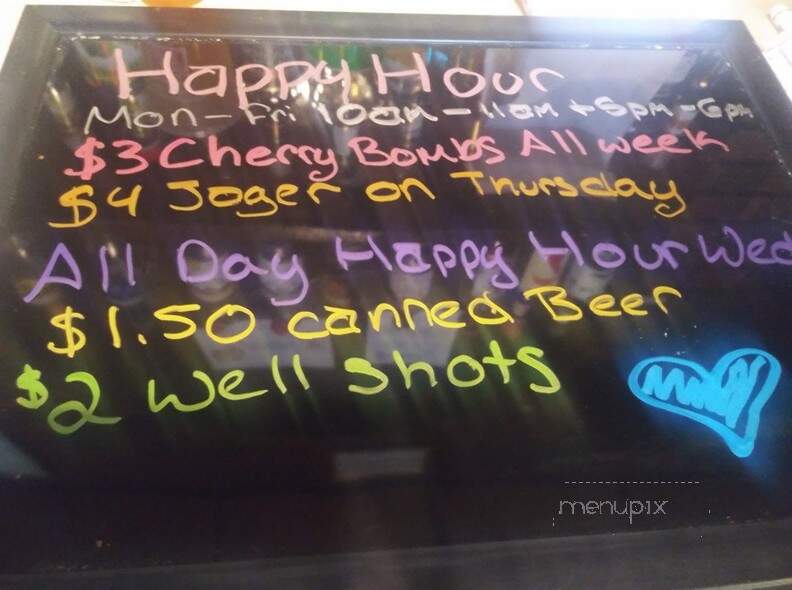 Happy Hour
Mon-Fri 10am-11am + 5pm-6pm
$3 Cherry Bombs All week
$4 Jager on Thursday
All Day Happy Hour Wed
$1.50 canned Beer
$2 Well Shots
menupix